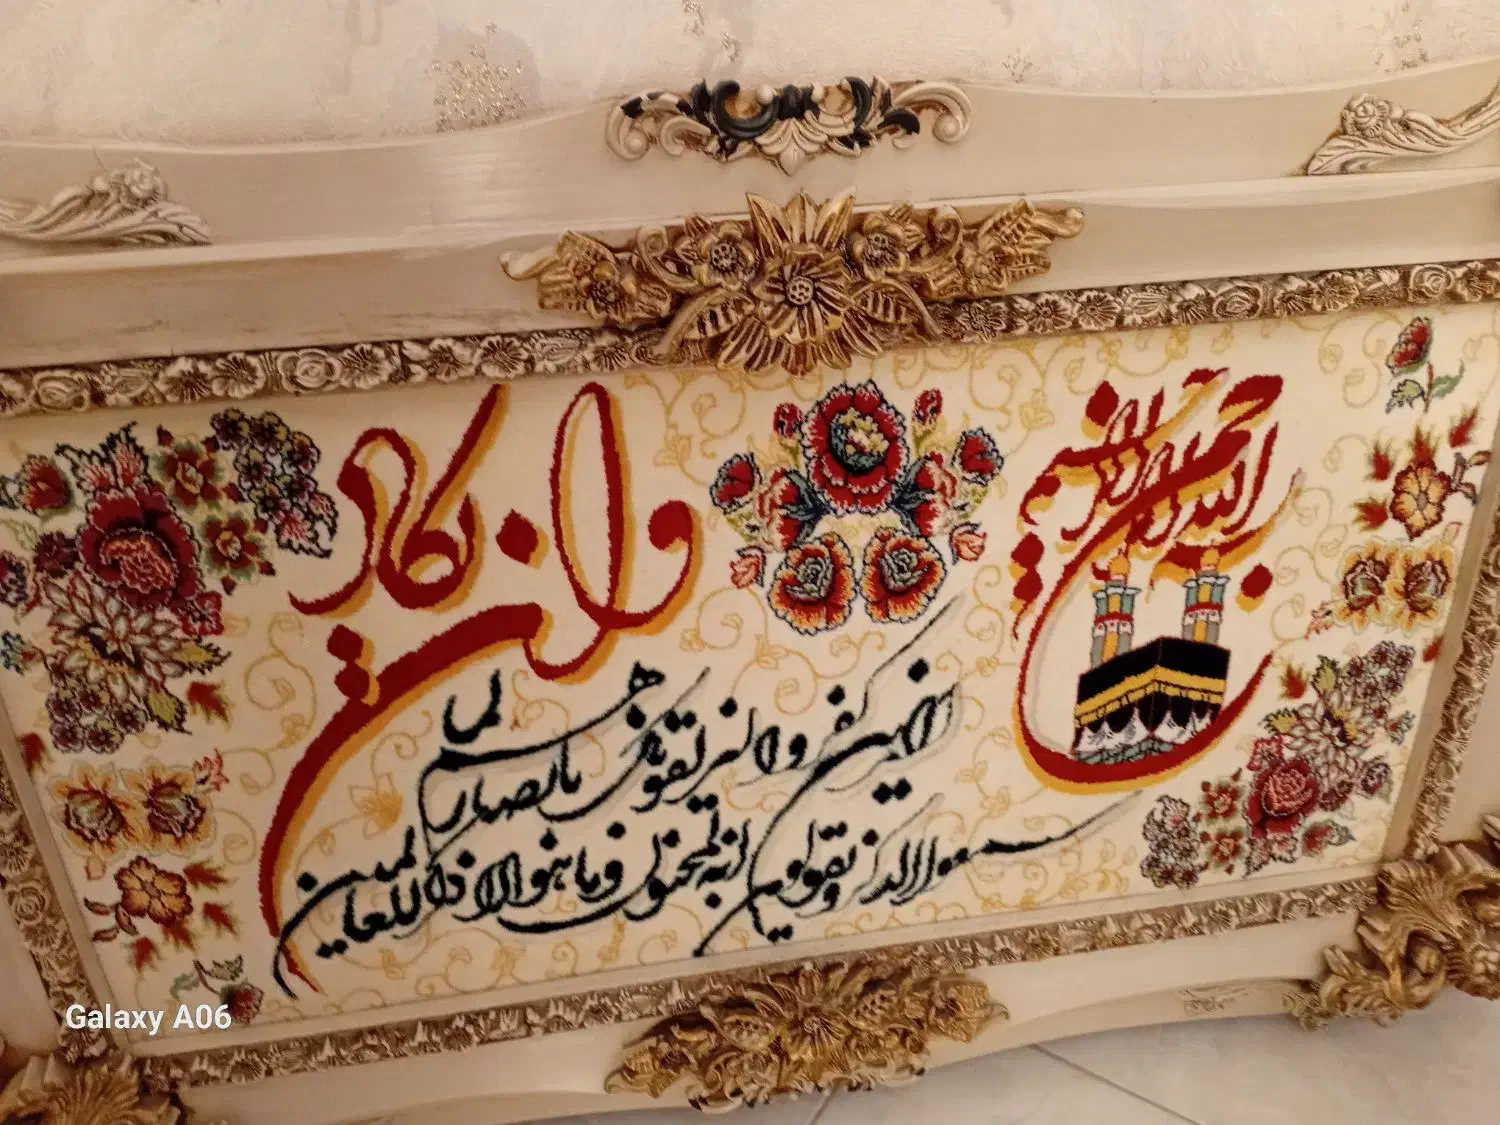 بسم الله الرحمن الرحیم
وان یکاد
الذین کفروا لیزلقونک بابصارهم لما
سمعوا الذکر ویقولون انه لمجنون وما هو الا ذکر للعالمین
Galaxy A06